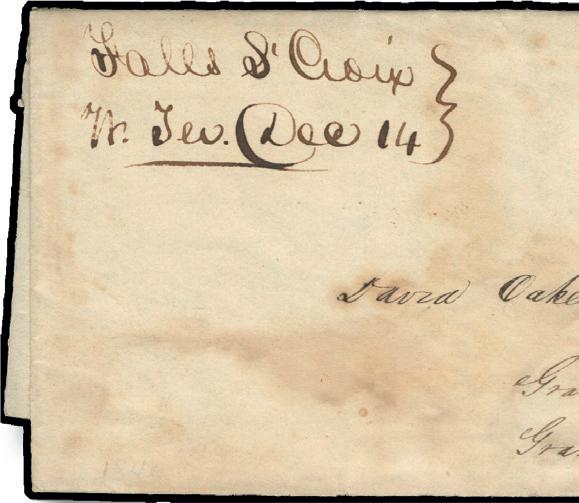 Falls St Croix
W. Ter. Dec 14
David Oake
Gra
Gra